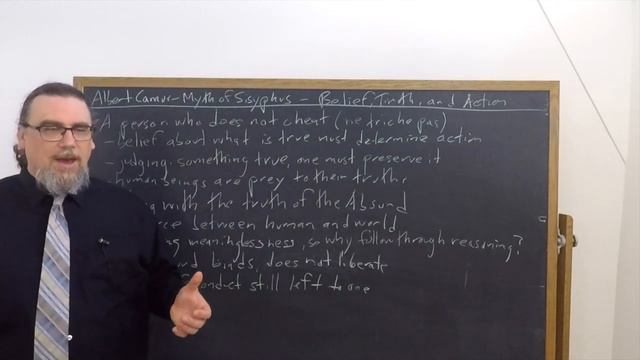 Albert Camus - Myth of Sisyphus - Belief, Truth, and Action
A person who does not cheat (ne triche pas)
- belief about what is true must determine action
- judging something true, one must preserve it
human beings are prey to their truths
with the truth of the Absurd
between human and world
meaninglessness, so why follow through reasoning?
binds, does not liberate
conduct still left to one